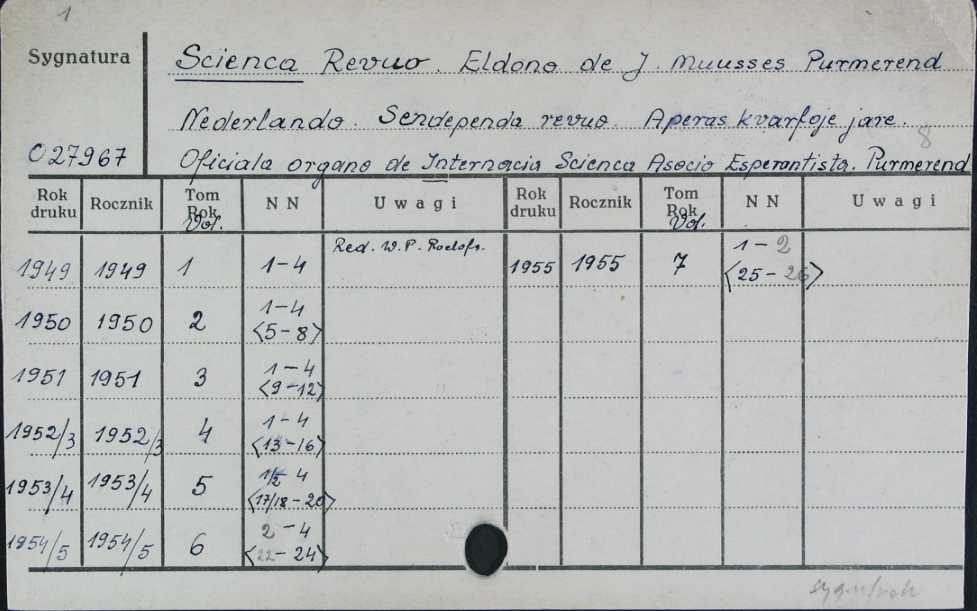 1
Sygnatura Scienca Revuo. Eldono de J. Muusses Purmerend
Nederlando. Sendependa revuo. Aperas kvarfoje jare.
8
027967 Oficiala organo de Internacia Scienca Asocio Esperantista. Purmerend
Rok druku Rocznik Tom Rok Vol. N N Uwagi Rok druku Rocznik Tom Rok Vol. N N Uwagi
1949 1949 1 1-4 Red. W.P. Roelofs. 1955 1955 7 1-2 <25-26>
1950 1950 2 1-4 <5-8>
1951 1951 3 1-4 <9-12>
1952/3 1952/3 4 1-4 <13-16>
1953/4 1953/4 5 1/2 4 <17/18-20>
1954/5 1954/5 6 2-4 <22-24>